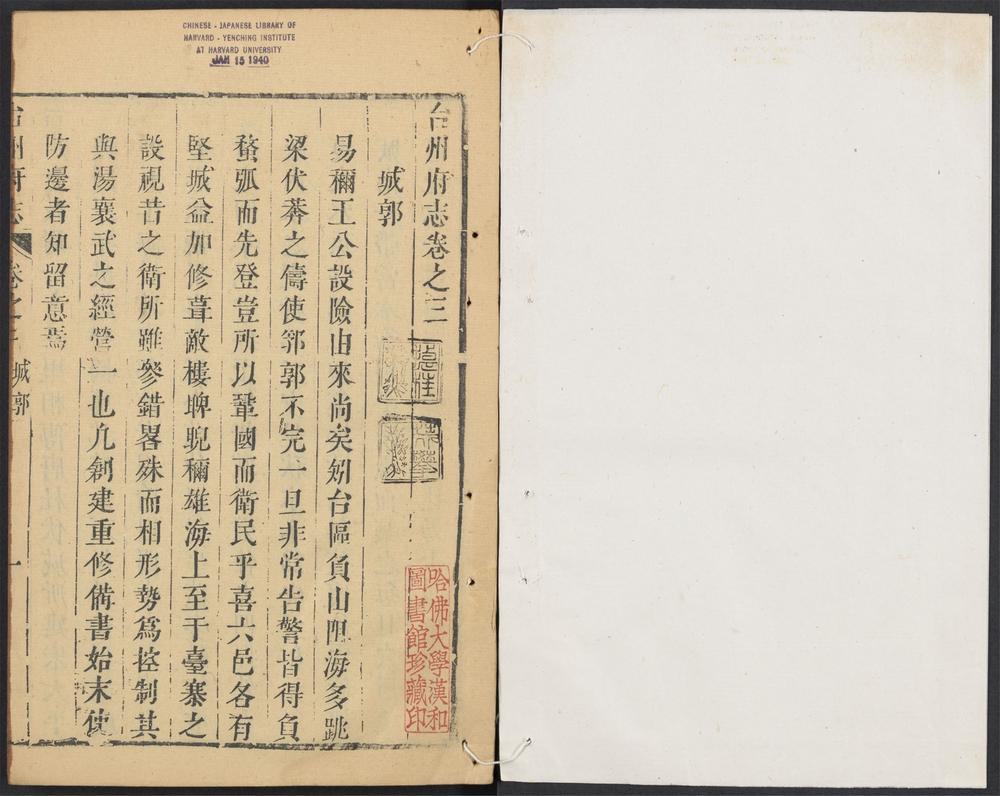 CHINESE - JAPANESE LIBRARY OF
HARVARD - YENCHING INSTITUTE
AT HARVARD UNIVERSITY
JAN 15 1940
台州府志卷之三
城郭
易稱王公設險由來尚矣矧台區負山阻海多跳
梁伏莽之儔使郛郭不完一旦非常告警皆得負
蝥弧而先登豈所以鞏國而衛民乎喜六邑各有
堅城益加修葺敵樓睥睨稱雄海上至于臺寨之
設視昔之衛所雖參錯畧殊而相形勢爲控制其
與湯襄武之經營一也凢創建重修備書始末使
防邊者知留意焉
台州府志
卷之三
城郭
一
哈佛大學漢和
圖書館珍藏印